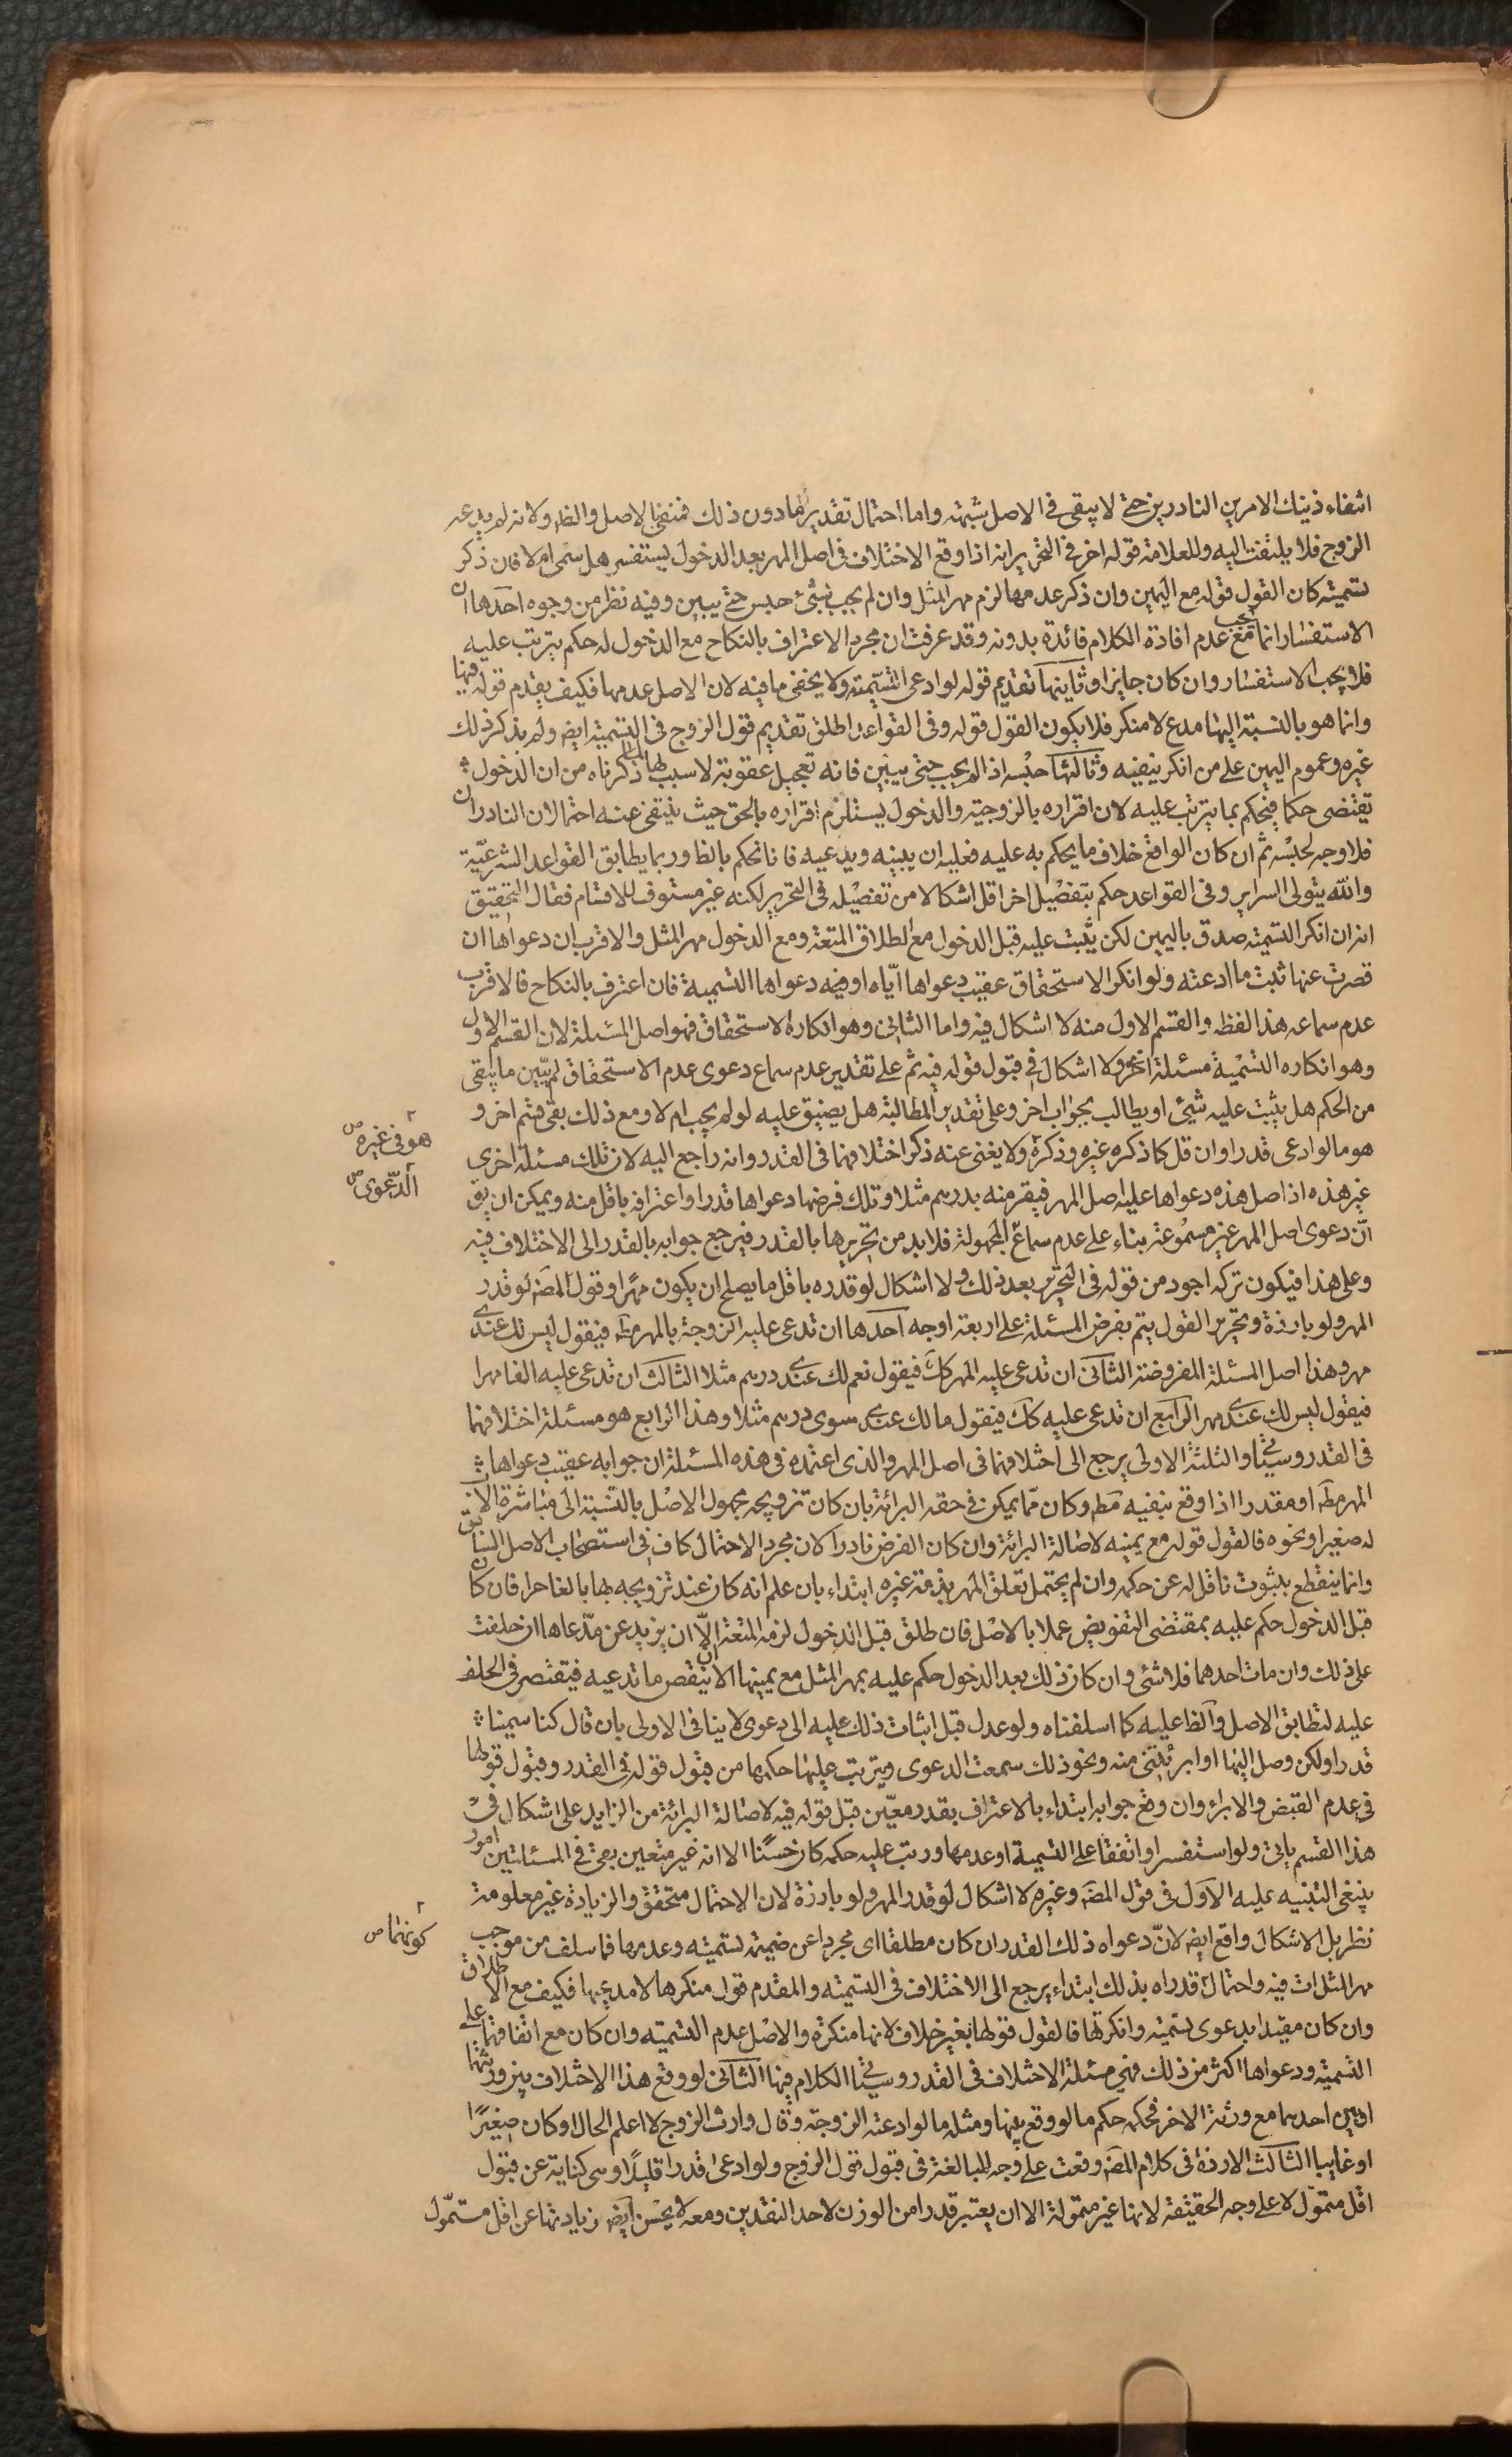 انتفاء ذينك الامرين النادرين حتى لا يبقى في الاصل شبهة واما احتمال تقدير لما دون ذلك فمنفي بالاصل والظ ولانه لم يدعه
الزوج فلا يلتفت اليه وللعلامة قول اخر في التحرير انه اذا وقع الاختلاف في اصل المهر بعد الدخول يستفسر هل سمى ام لا فان ذكر
تسمية كان القول قوله مع اليمين وان ذكر عدمها لزم مهر المثل وان لم يجب بشئ حبس حتى يبين وفيه نظر من وجوه احدها ان
الاستفسار انما يجب مع عدم افادة الكلام فائدة بدونه وقد عرفت ان مجرد الاعتراف بالنكاح مع الدخول له حكم يترتب عليه
فلا يجب الاستفسار وان كان جايزا وثانيها تقديم قوله لو ادعى التسمية ولا يخفى ما فيه لان الاصل عدمها فكيف يقدم قوله فيها
وانما هو بالنسبة اليها مدع لا منكر فلا يكون القول قوله وفي القواعد اطلق تقديم قول الزوج في التسمية ايض ولم يذكر ذلك
غيره وعموم اليمين على من انكر ينفيه وثالثها حبسه اذا لم يجب حتى يبين فانه تعجيل عقوبة لا سبب لها لما ذكرناه من ان الدخول
يقتضى حكما فيحكم بما يترتب عليه لان اقراره بالزوجية والدخول يستلزم اقراره بالحق حيث ينتفى عنه احتمالان النادران
فلا وجه لحبسه ثم ان كان الواقع خلاف ما يحكم به عليه فعليه ان يبينه ويدعيه فانا نحكم بالظ وربما يطابق القواعد الشرعية
والله يتولى السراير وفي القواعد حكم بتفصيل اخر اقل اشكالا من تفصيله في التحرير لكنه غير مستوف للاقسام فقال التحقيق
انه ان انكر التسمية صدق باليمين لكن يثبت عليه قبل الدخول مع الطلاق المتعة ومع الدخول مهر المثل والاقرب ان دعواها ان
قصرت عنها ثبت ما ادعته ولو انكر الاستحقاق عقيب دعواها اياه او فيه دعواها التسمية فان اعترف بالنكاح فالاقرب
عدم سماعه هذا لفظه والقسم الاول منه لا اشكال فيه واما الثانى وهو انكاره الاستحقاق فهو اصل المسئلة لان القسم الاول
وهو انكاره التسمية مسئلة اخرى ولا اشكال في قبول قوله فيه ثم على تقدير عدم سماع دعوى عدم الاستحقاق لم يبين ما يبقى
من الحكم هل يثبت عليه شئ او يطالب بجواب اخر وعلى تقدير المطالبة هل يضيق عليه لو لم يجب ام لا ومع ذلك بقى قسم اخر و
هو ما لو ادعى قدرا وان قل كما ذكره غيره وذكره ولا يغنى عنه ذكر اختلافهما في القدر وانه راجع اليه لان تلك مسئلة اخرى
غير هذه اذ اصل هذه دعواها عليه اصل المهر فيقر منه بدرهم مثلا وتلك فرضها دعواها قدرا واعترافه باقل منه ويمكن ان يق
ان دعوى اصل المهر غير مسموعة بناء على عدم سماع المجهولة فلا بد من تحريرها بالقدر فيرجع جوابه بالقدر الى الاختلاف فيه
وعلى هذا فيكون تركه اجود من قوله في التحرير بعد ذلك ولا اشكال لو قدره باقل ما يصلح ان يكون مهرا وقول المصَ لو قدر
المهر ولو بارزة وتحرير القول يتم بفرض المسئلة على اربعة اوجه احدها ان تدعى عليه الزوجة بالمهر مط فيقول ليس لك عندى
مهر وهذا اصل المسئلة المفروضة الثانى ان تدعى عليه المهر كك فيقول نعم لك عندى درهم مثلا الثالث ان تدعى عليه الفا مهرا
فيقول ليس لك عندى مهر الرابع ان تدعى عليه كك فيقول مالك عندى سوى درهم مثلا وهذا الرابع هو مسئلة اختلافهما
في القدر وسيأتى والثلثة الاولى يرجع الى اختلافهما في اصل المهر والذى اعتمده في هذه المسئلة ان جوابه عقيب دعواها
المهر مط او مقدرا اذا وقع بنفيه مط وكان مما يمكن في حقه البرائة بان كان تزويجه مجهول الاصل بالنسبة الى مباشرة الاب
له صغيرا ونحوه فالقول قوله مع يمينه لاصالة البرائة وان كان الفرض نادرا لان مجرد الاحتمال كاف في استصحاب الاصل السابق
وانما ينقطع بثبوت ناقل له عن حكمه وان لم يحتمل تعلق المهر بذمة غيره ابتداء بان علم انه كان عند تزويجه بها بالغا حرا فان كان
قبل الدخول حكم عليه بمقتضى التفويض عملا بالاصل فان طلق قبل الدخول لزمه المتعة الا ان يزيد عن مدعاها ان حلفت
على ذلك وان مات احدهما فلا شئ وان كان ذلك بعد الدخول حكم عليه بمهر المثل مع يمينها الا ان ينقص ما تدعيه فيقتصر في الحلف
عليه لتطابق الاصل والظ عليه كما اسلفناه ولو عدل قبل اثبات ذلك عليه الى دعوى لا ينافى الاولى بان قال كنا سمينا
قدرا ولكن وصل اليها او ابرئتنى منه ونحو ذلك سمعت الدعوى ويترتب عليها حكمها من قبول قوله في القدر وقبول قولها
في عدم القبض والابراء وان وقع جوابه ابتداء بالاعتراف بقدر معين قبل قوله فيه لاصالة البرائة من الزايد على اشكال في
هذا القسم ياتى ولو استفسر او اتفقا على التسمية او عدمها ورتب عليه حكمه كان حسنا الا انه غير متعين بقى في المسئلتين امور
ينبغى التنبيه عليه الاول في قول المصَ وغيره لا اشكال لو قدر المهر ولو بارزة لان الاحتمال متحقق والزيادة غير معلومة
نظر بل الاشكال واقع ايض لان دعواه ذلك القدر ان كان مطلقا اى مجردا عن ضميمة تسميته وعدمها فما سلف من موجب
مهر المثل ات فيه واحتمال قدراه بذلك ابتداء يرجع الى الاختلاف في التسمية والمقدم قول منكرها لا مدعيها فكيف مع الاطلاق
وان كان مقيدا بدعوى تسميته وانكرتها فالقول قولها بغير خلاف لانها منكرة والاصل عدم التسمية وان كان مع اتفاقهما على
التسمية ودعواها اكثر من ذلك فهى مسئلة الاختلاف في القدر وسيأتى الكلام فيها الثانى لو وقع هذا الاختلاف بين ورثتها
او بين احدهما مع ورثة الاخر فحكمه حكم ما لو وقع بينهما ومثله ما لو ادعته الزوجة وقال وارث الزوج لا اعلم الحال او كان صغيرا
او غايبا الثالث الارزة في كلام المصَ وقعت على وجه المبالغة في قبول قول الزوج ولو ادعى قدرا قليلا وهى كناية عن قبول
اقل متمول لا على وجه الحقيقة لانها غير متمولة الا ان يعتبر قدرا من الوزن لاحد النقدين ومعه لا يحسن ايض زيادتها عن اقل متمول
هو في غيره ص
الدعوى ص
كونهما ص